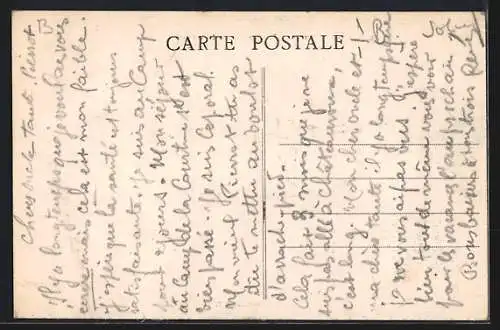 CARTE POSTALE
Cher oncle tante Pierrot
Il y a longtemps que je voulais vous
écrire mais cela est mon faible.
J'espère que la santé est toujours
satisfaisante. je suis au Camp
pour jours. Mon séjour
au Camp de la Courtine s'est
bien passé. Je suis caporal.
Mon vieux Pierrot tu as
du te mettre au boulot
d'arrache-pied.
Cela fait 3 mois que je ne
suis pas allé à Châteauroux,
c'est long. Mon cher oncle et
ma chère tante il y a longtemps que
je ne vous ai pas vus. J'espère
bien tout de même vous voir
pour les vacances
Bons baisers à tous trois